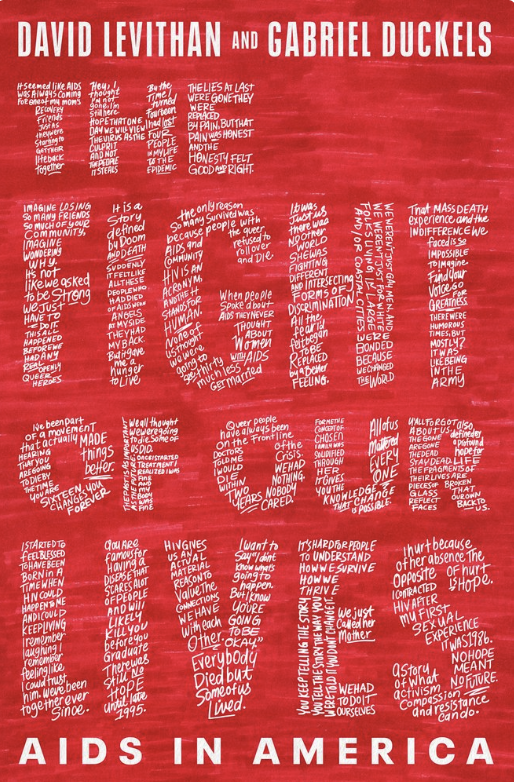 DAVID LEVITHAN AND GABRIEL DUCKELS
It seemed like AIDS
was always coming
for one of my mom's
Recovery
friends
just as
they were
starting to
get their
life back
together
Hey, I
thought
I'm not
gone. I'm
still here
HOPE THAT ONE
DAY WE WILL VIEW
THE VIRUS AS THE
CULPRIT
AND NOT
THE PEOPLE
IT STEALS
By the
Time I
turned
fourteen
I had lost
FOUR
PEOPLE
IN MY LIFE
TO THE
EPIDEMIC
THE LIES AT LAST
WERE GONE THEY
WERE
REPLACED
BY PAIN, BUT THAT
PAIN WAS HONEST
AND THE
HONESTY FELT
GOOD AND RIGHT.
IMAGINE LOSING
SO MANY FRIENDS
SO MUCH OF YOUR
COMMUNITY,
IMAGINE
WONDERING
WHY.
It's not
like we asked
to be strong
we just
HAVE TO
DO IT
THIS ALL
HAPPENED
BEFORE WE
HAD ANY
REAL
OPENLY
QUEER
HEROES
It is a
Story
defined
by Doom
AND DEATH
SUDDENLY
IT FELT LIKE
ALL THESE
PEOPLE WHO
HAD DIED
OF AIDS WERE
ANGELS
AT MY SIDE
THEY HAD
MY BACK.
But it gave
me a
hunger
to live
the only reason
So many survived was
because people with
AIDS and
the queer
COMMUNITY
refused to
roll over
and Die
HIV IS AN
ACRONYM,
AND THE H
STANDS FOR
HUMAN.
When people
Spoke about
AIDS THEY NEVER
THOUGHT
ABOUT
Women
with AIDS
None of
us thought
we were
going to
be thirty
much less
Get married
It was
Just us
there was
no other
WORLD
SHE WAS
FIGHTING
DIFFERENT
AND INTERSECTING
FORMS OF
DISCRIMINATION
All the
fear I
felt began
TO BE
REPLACED
by a better
FEELING.
WE WEREN'T JUST GAY MEN, AND
WE WEREN'T JUST WHITE
FOLKS LIVING IN LARGE
AND/OR COASTAL CITIES
WE WERE
BONDED
BECAUSE
WE CHANGED
THE WORLD
That MASS DEATH
experience and the
INDIFFERENCE we
faced is so
IMPOSSIBLE
TO IMAGINE
Find your
Voice GO
FOR
GREATNESS
THERE WERE
HUMOROUS
TIMES. BUT
MOSTLY?
IT WAS
LIKE BEING
IN THE
ARMY
I've been part
of a movement
that actually MADE
things
better
HEARING
THAT YOU
ARE GOING
TO DIE BY
THE TIME
YOU ARE
SIXTEEN, CHANGES
YOU
FOREVER
We all thought
we were going
to die. Some of
us DID.
THE PAST IS AS IMPORTANT
AS THE FUTURE
I STARTED
TREATMENT
REALIZED
I WAS
FINE
AND
MY
BODY
WAS
FINE
Queer people
have always been
on the Frontline
of the
Crisis.
DOCTORS
TOLD ME
I WOULD
DIE
WITHIN
TWO
YEARS.
WE HAD
NOTHING.
NOBODY
CARED.
FOR ME THE
CONCEPT OF
CHOSEN
FAMILY WAS
SOLIDIFIED
THROUGH
HIV
IT GIVES
YOU THE
KNOWLEDGE
THAT CHANGE
IS POSSIBLE.
All of us
Mattered
EVERY
ONE
WE ALL FORGOT
ABOUT US.
THE GONE
ARE GONE
THE DEAD
STAY DEAD
THE FRAGMENTS OF
THEIR LIVES ARE
PIECES OF BROKEN
GLASS THAT
REFLECT OUR OWN
FACES BACK TO
US.
It also
defined
a profound
hope for
LIFE
I STARTED TO
FEEL BLESSED
TO HAVE BEEN
BORN IN A
TIME WHEN
HIV COULD
HAPPEN TO ME
AND I COULD
KEEP LIVING
I remember
laughing. I
remember
feeling like
I could trust
him. We've been
together ever
Since.
You are
famous for
having a
DISEASE THAT
SCARES A LOT
OF PEOPLE
AND WILL
LIKELY
KILL you
before you
Graduate
There was
still NO
HOPE
until late
1995.
HIV GIVES
US AN
ACTUAL
MATERIAL
REASON TO
VALUE THE
CONNECTIONS
WE HAVE
with each
Other.
Everybody
Died but
Some of us
Lived.
I want to
Say "I don't
know what's
going to
happen.
But I know
YOU'RE
GOING
TO BE
OKAY."
IT'S HARD FOR PEOPLE
TO UNDERSTAND
HOW WE SURVIVE
HOW WE
THRIVE
YOU KEEP TELLING THE STORY
YOU TELL THE STORY THE WAY YOU
WERE TOLD IT YOU DON'T CHANGE IT
We just
Called her
Mother
WE HAD
TO DO IT
OURSELVES
I hurt because
of her absence. The
opposite
of hurt
is Hope.
I CONTRACTED
HIV AFTER
MY FIRST
SEXUAL
EXPERIENCE
IT WAS 1986.
NO HOPE
MEANT
NO FUTURE.
a Story
of what
activism
Compassion
and resistance
can do.
AIDS IN AMERICA